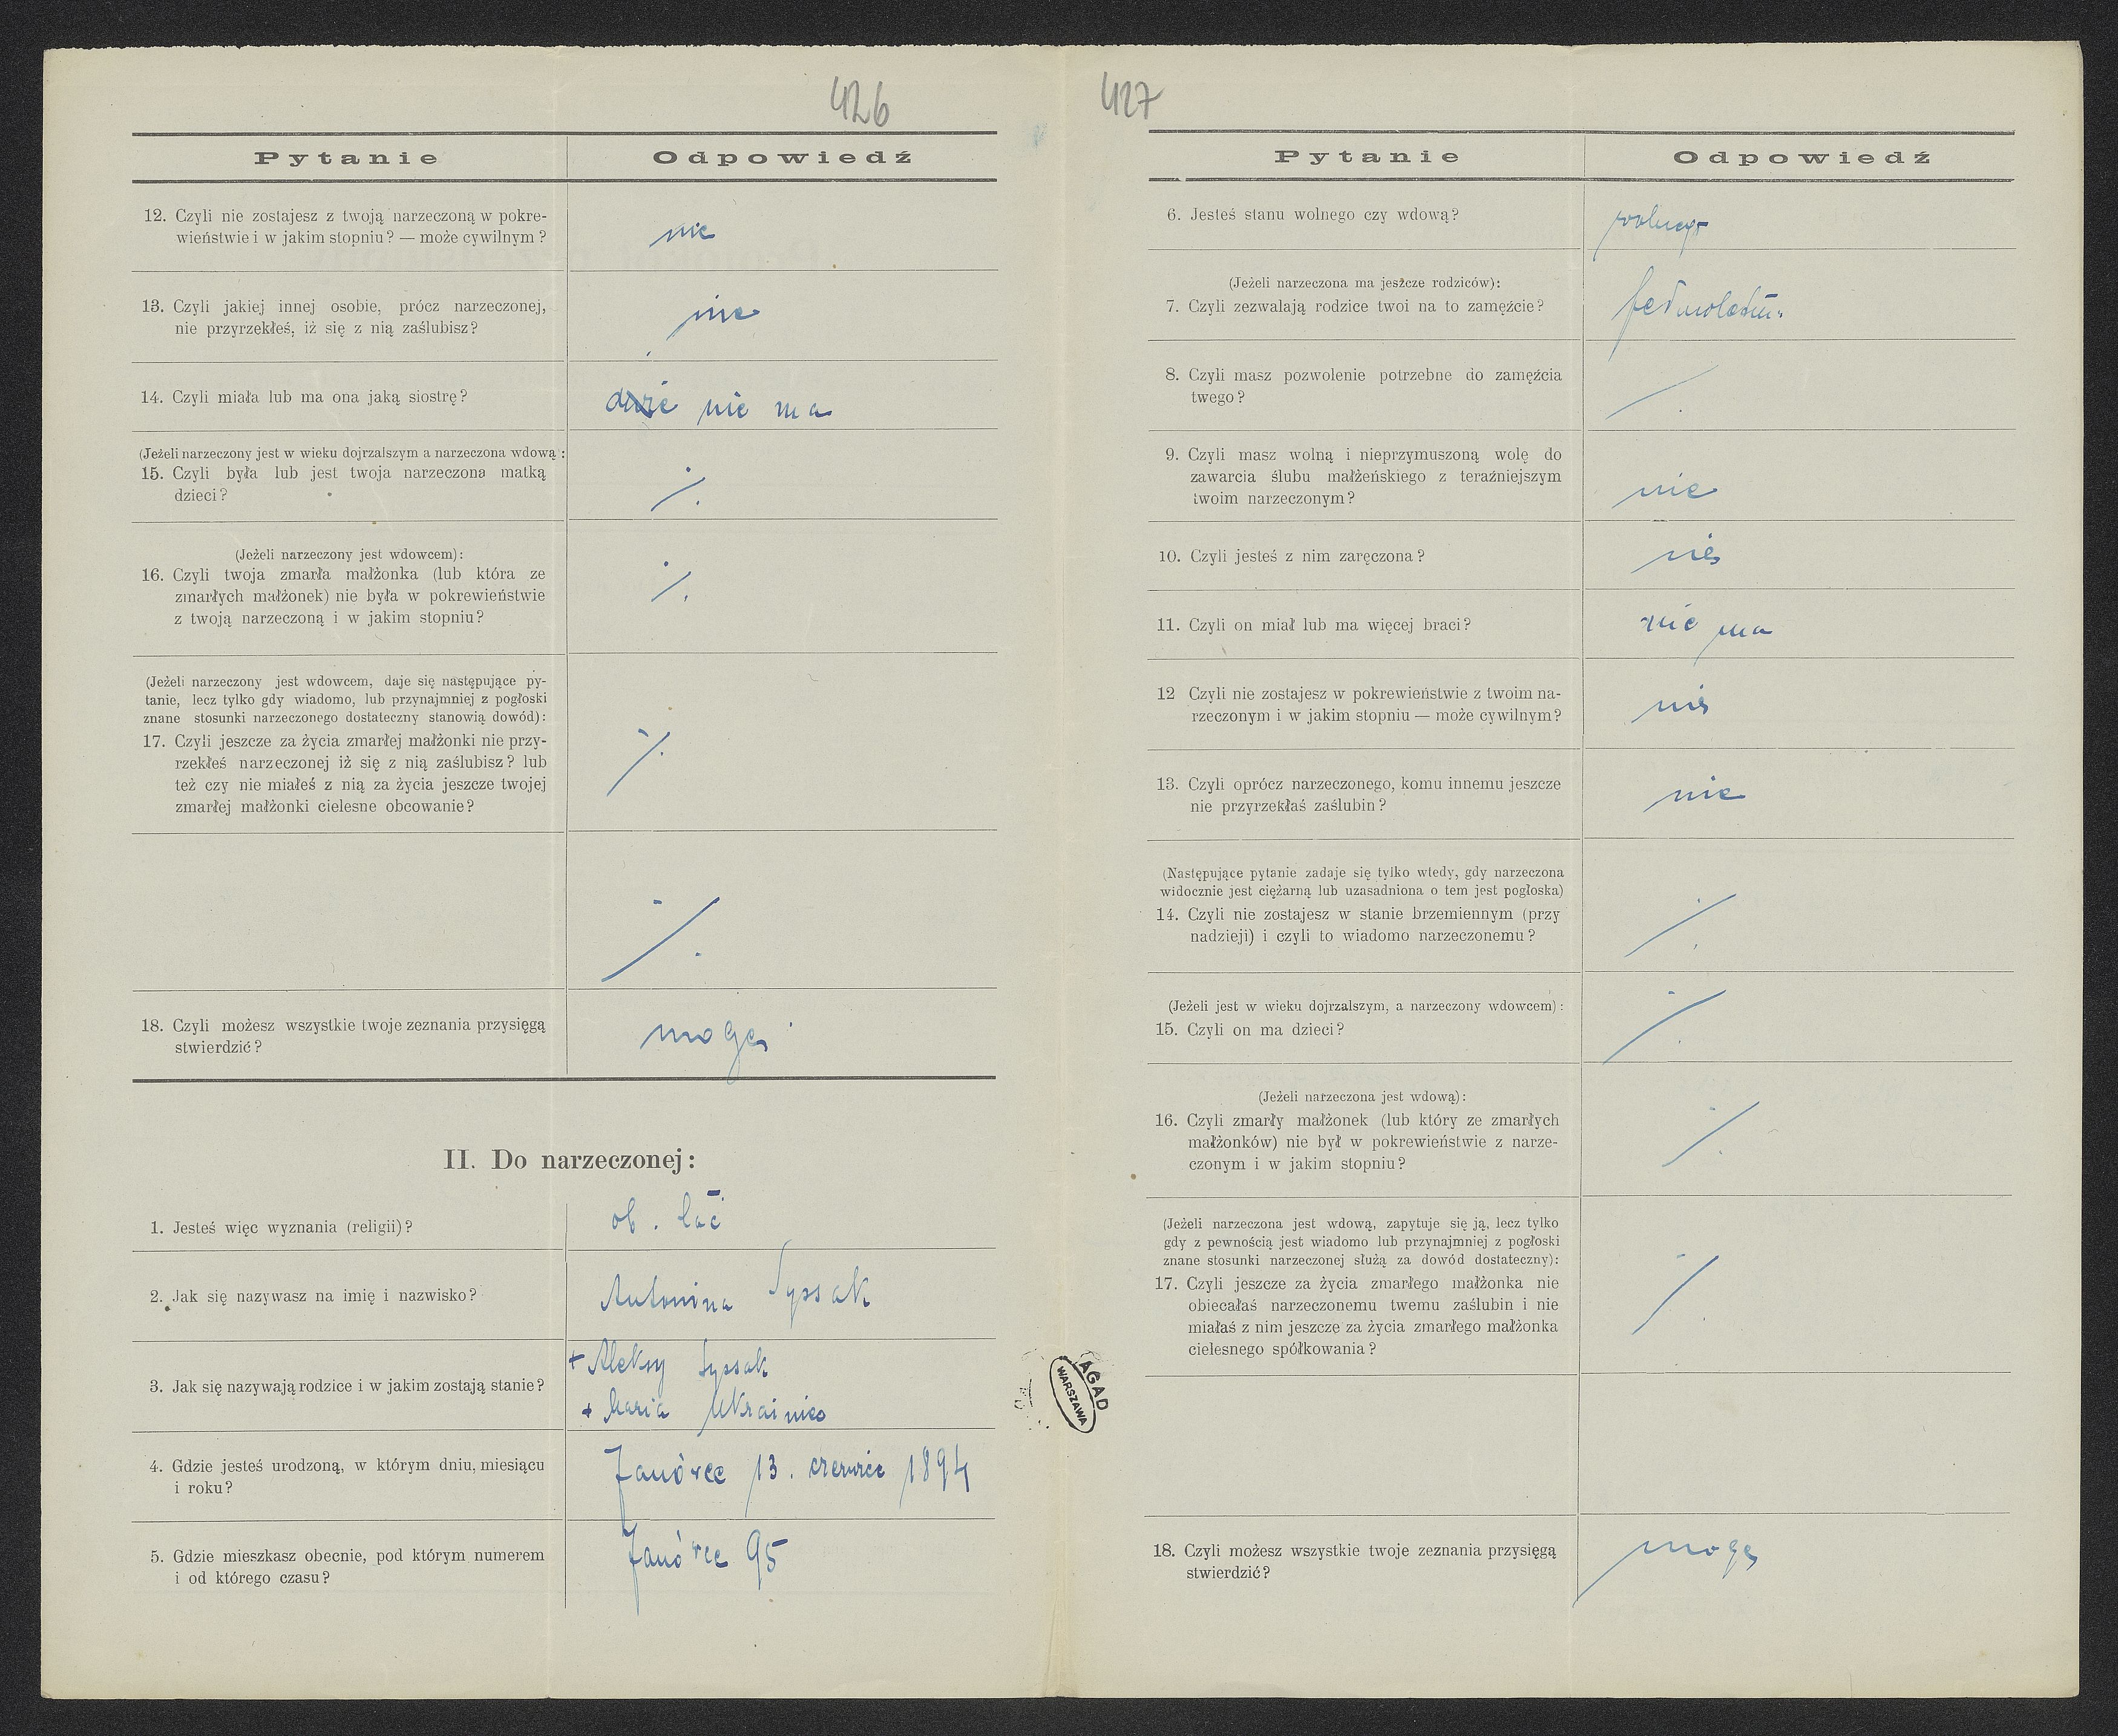 426
Pytanie
Odpowiedź
12. Czyli nie zostajesz z twoją narzeczoną w pokre-
wieństwie i w jakim stopniu? — może cywilnym?
nie
13. Czyli jakiej innej osobie, prócz narzeczonej,
nie przyrzekłeś, iż się z nią zaślubisz?
nie
14. Czyli miała lub ma ona jaką siostrę?
nie ma
(Jeżeli narzeczony jest w wieku dojrzalszym a narzeczona wdową:
15. Czyli była lub jest twoja narzeczona matką
dzieci?
(Jeżeli narzeczony jest wdowcem):
16. Czyli twoja zmarła małżonka (lub która ze
zmarłych małżonek) nie była w pokrewieństwie
z twoją narzeczoną i w jakim stopniu?
(Jeżeli narzeczony jest wdowcem, daje się następujące py-
tanie, lecz tylko gdy wiadomo, lub przynajmniej z pogłoski
znane stosunki narzeczonego dostateczny stanowią dowód):
17. Czyli jeszcze za życia zmarłej małżonki nie przy-
rzekłeś narzeczonej iż się z nią zaślubisz? lub
też czy nie miałeś z nią za życia jeszcze twojej
zmarłej małżonki cielesne obcowanie?
18. Czyli możesz wszystkie twoje zeznania przysięgą
stwierdzić?
mogę
II. Do narzeczonej:
1. Jesteś więc wyznania (religii)?
ob. łać
2. Jak się nazywasz na imię i nazwisko?
Antonina Syssak
3. Jak się nazywają rodzice i w jakim zostają stanie?
+ Aleksy Syssak
+ Maria Ukrainiec
4. Gdzie jesteś urodzoną, w którym dniu, miesiącu
i roku?
Janówce 13. czerwca 1894
5. Gdzie mieszkasz obecnie, pod którym numerem
i od którego czasu?
Janówce 95
427
Pytanie
Odpowiedź
6. Jesteś stanu wolnego czy wdową?
wolnego
(Jeżeli narzeczona ma jeszcze rodziców):
7. Czyli zezwalają rodzice twoi na to zamęźcie?
8. Czyli masz pozwolenie potrzebne do zamęźcia
twego?
9. Czyli masz wolną i nieprzymuszoną wolę do
zawarcia ślubu małżeńskiego z teraźniejszym
twoim narzeczonym?
nie
10. Czyli jesteś z nim zaręczona?
nie
11. Czyli on miał lub ma więcej braci?
nie ma
12 Czyli nie zostajesz w pokrewieństwie z twoim na-
rzeczonym i w jakim stopniu — może cywilnym?
nie
13. Czyli oprócz narzeczonego, komu innemu jeszcze
nie przyrzekłaś zaślubin?
nie
(Następujące pytanie zadaje się tylko wtedy, gdy narzeczona
widocznie jest ciężarną lub uzasadniona o tem jest pogłoska)
14. Czyli nie zostajesz w stanie brzemiennym (przy
nadzieji) i czyli to wiadomo narzeczonemu?
(Jeżeli jest w wieku dojrzalszym, a narzeczony wdowcem):
15. Czyli on ma dzieci?
(Jeżeli narzeczona jest wdową):
16. Czyli zmarły małżonek (lub który ze zmarłych
małżonków) nie był w pokrewieństwie z narze-
czonym i w jakim stopniu?
(Jeżeli narzeczona jest wdową, zapytuje się ją, lecz tylko
gdy z pewnością jest wiadomo lub przynajmniej z pogłoski
znane stosunki narzeczonej służą za dowód dostateczny):
17. Czyli jeszcze za życia zmarłego małżonka nie
obiecałaś narzeczonemu twemu zaślubin i nie
miałaś z nim jeszcze za życia zmarłego małżonka
cielesnego spółkowania?
18. Czyli możesz wszystkie twoje zeznania przysięgą
stwierdzić?
mogę
AGAD
WARSZAWA